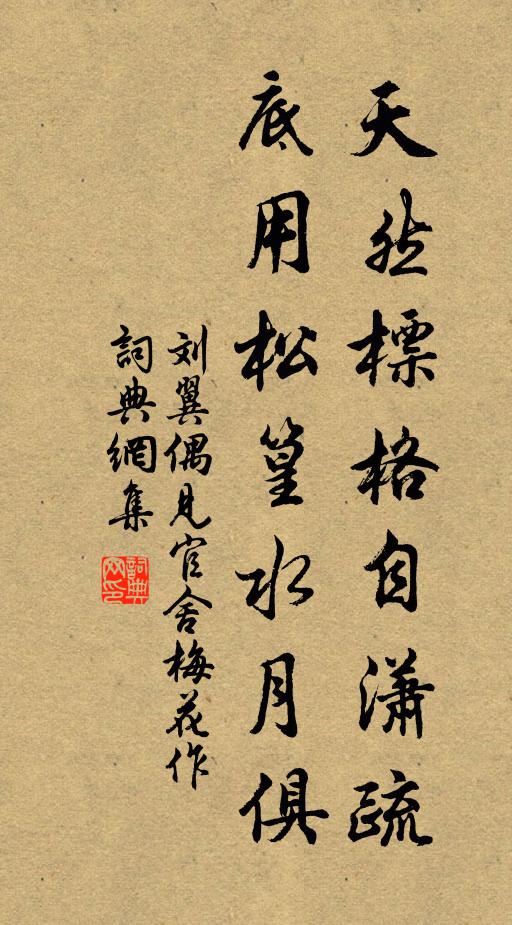 天然標格自瀟疏
底用松篁水月俱
刘翼偶見官舍梅花作
詞典網集
詞典网印